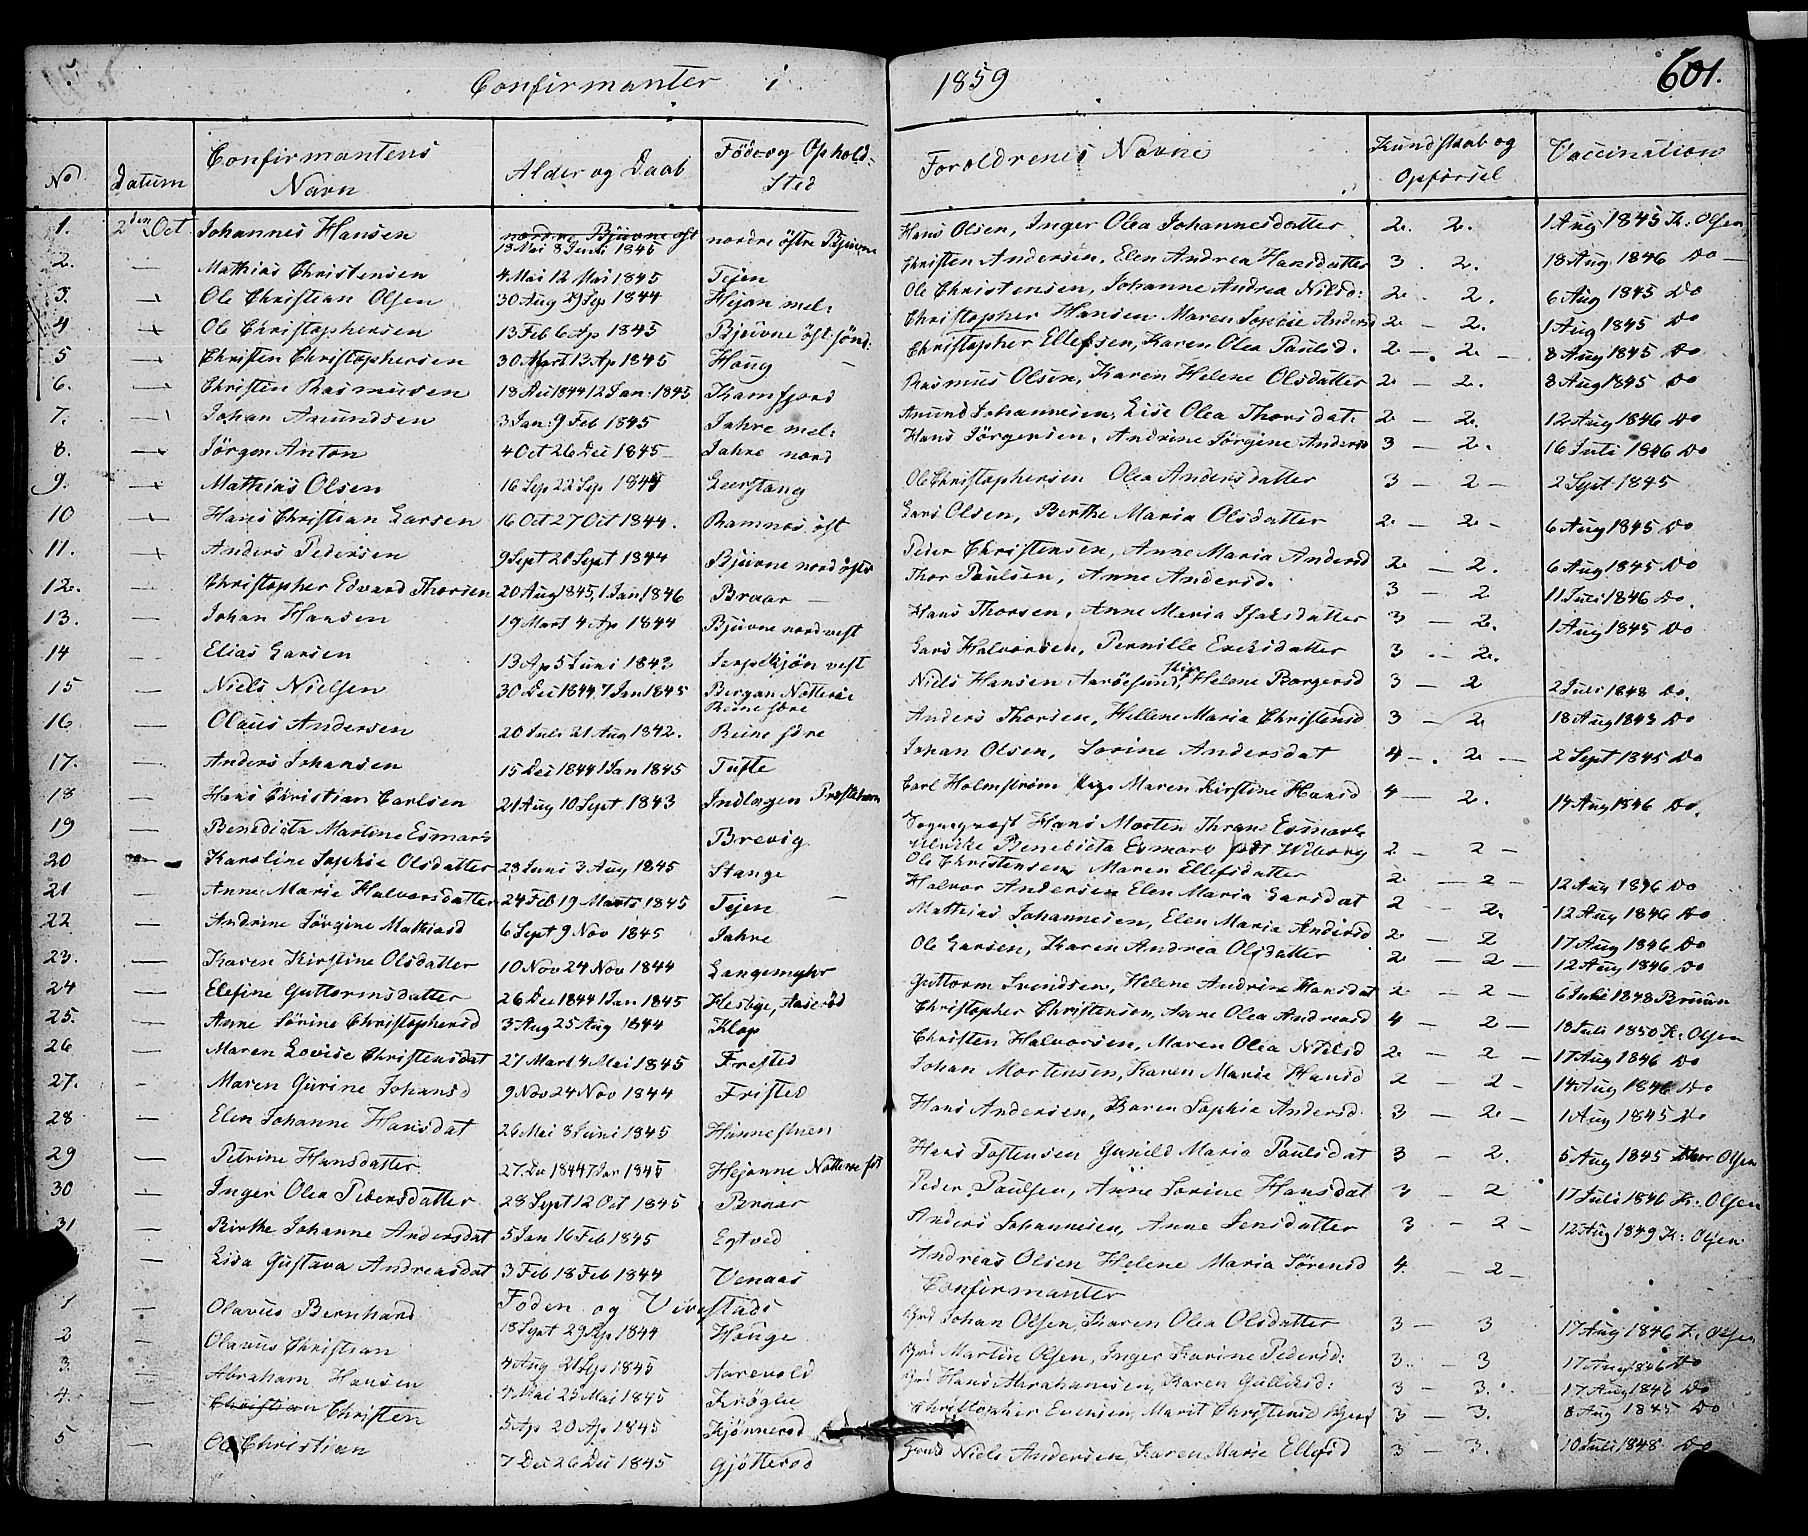 Confirmanter i 1859 601.
No Datum Confirmantens Navn Alder og Daab Föde og Ophold-Sted Foroldrenes Navne Kundskab og Opførsel Vaccination
1. 2den Oct Johannes Hansen nordre Bjuvne öst 13 Mai 8 Juni 1845 nordre östre Bjuvne Hans Olsen, Inger Olea Johannesdatter 2. 2. 1 Aug 1845 K. Olsen
2. — Mathias Christensen 4 Mai 12 Mai 1845 Tejen Christen Andersen, Elen Andrea Hansdatter 3. 2. 18 Aug 1846 Do —
3. — Ole Christian Olsen 30 Aug 29 Sep 1844 Hejan mel: Ole Christensen, Johanne Andrea Nilsd: 2. 2. 6 Aug 1845 Do
4 — Ole Christophersen 13 Feb 6 Ap 1845 Bjuvne öst sönd: Christopher Hansen Maren Sophie Andersd 2 — 2. 1 Aug 1845 Do
5 — Christen Christophersen 30 Mart 13 Ap 1845 Haug — Christopher Ellefsen, Karen Olea Paulsd. 2 — 2 — 8 Aug 1845 Do
6. — Christen Rasmusen 18 Dec 1844 12 Jan: 1845 Kamfjord Rasmus Olsen, Karen Helene Olsdatter 2 — 2. 8 Aug 1845 Do
7. — Johan Amundsen 3 Jan: 9 Feb 1845 Jahre mel: Amund Johannesen, Lise Olea Thorsdat: 2 — 2. 12 Aug 1846 Do
8. — Jörgen Anton 4 Oct 26 Dec 1845 — Jahre nord Hans Jörgensen, Andrine Jörgine Andersd 3 — 2. 16 Juli 1846 Do
9. — Mathias Olsen 16 Sep 22 Sep 1845 Leerstang Ole Christophersen Olea Andersdatter 3 — 2 — 2 Sept 1845
10 — Hans Christian Larsen 16 Oct 27 Oct 1844. Ramnæs öst Lars Olsen, Berthe Maria Olsdatter 2 — 2 — 6 Aug 1845 Do
11. — Anders Pedersen 9 Sept 20 Sept 1844 Bjuvne nord östr Peder Christensen, Anne Maria Andersd 2 — 2. 6 Aug 1845 Do
12. — Christopher Edvard Thorsen 20 Aug 1845, 1 Jan 1846 Braar — Thor Paulsen, Anne Andersd. 3 — 2 11 Juli 1846 Do.
13. — Johan Hansen 19 Mart 4 Ap 1844 Bjuvne nord vest Hans Thorsen, Anne Maria Isaksdatter 3 — 2. 1 Aug 1845 Do
14 — Elias Larsen 13 Ap 5 Juni 1842 vest Lars Halvorsen, Pernille Ericksdatter 3 — 2.
15 — Niels Nielsen 30 Dec 1844 7 Jan 1845 Bergan Nötteröe Niels Hansen Aaröesund, Helene Borgersd 3 — 2 2 Juli 1848 Do.
16 — Olaus Andersen 20 Juli 21 Aug 1842. Reine söre Anders Thorsen, Hellene Maria Christensd 3 — 2 18 Aug 1843 Do
17. — Anders Johansen 15 Dec 1844 1 Jan 1845 Tufte Johan Olsen, Sorine Andersdat 4 — 2 — 2 Sept 1845 Do
18 — Hans Christian Carlsen 21 Aug 10 Sept 1843 Indlagen Carl Holmström Pige Maren Kirstine Hansd 4 — 2. 14 Aug 1846 Do.
19 — Benedicta Martine Esmark Brevig Sognepræst Hans Morten Thrane Esmark Ulrikke Benedicta Esmark født Wiborg 2 — 2 —
20 — Karoline Sophie Olsdatter 23 Juni 3 Aug 1845 Stange Ole Christensen Maren Ellefsdatter 2 — 2 — 12 Aug 1846 Do
21 — Anne Marie Halvorsdatter 24 Feb 19 Marts 1845 Tejen — Halvor Andersen Elen Maria Larsdat 2 — 2. 12 Aug 1846 Do
22. — Andrine Jörgine Mathiasd 6 Sept 9 Nov 1845 Jahre Mathias Johannesen, Elen Maria Andersd 2 — 2 17 Aug 1846 Do
23. — Karen Kirstine Olsdatter 10 Nov 24 Nov 1844 Langemyhr Ole Larsen, Karen Andrea Olsdatter 2 — 2 — 12 Aug 1846 Do
24 — Elefine Guttormsdatter 26 Dec 1844 1 Jan 1845 Hesbye, Aaseröd Guttorm Svendsen, Helene Andrine Hansdat 2 — 2 — 6 Juli 1848 Bruun
25. — Anne Sörine Christophersd 3 Aug 25 Aug 1844 Klop Christopher Christensen, Anne Olea Andreasd 4 — 2 — 13 Juli 1850 K. Olsen
26 — Maren Lovise Christensdat 27 Mart 4 Mai 1845 Frested Christen Halvorsen, Maren Olea Nielsd 2 — 2 — 17 Aug 1846 Do
27. — Maren Gurine Johansd 9 Nov 24 Nov 1844 Fristed Johan Mortensen, Karen Marie Hansd 2 — 2 — 14 Aug 1846 Do
28 — Elen Johanne Hansdat 26 Mai 8 Juni 1845 Hunnestuen Hans Andersen, Karen Sophie Andersd. 3 — 2 — 1 Aug 1845 Do
29 — Petrine Hansdatter 27 De 1844 7 Jan 1845 Hejanne Nötteröe Hans Tostensen Gunild Maria Paulsdat 3 — 2. 5 Aug 1845 Olsen
30 — Inger Olea Pedersdatter 23 Sept 12 Oct 1845 Braar Peder Paulsen, Anne Sorine Hansdat 3 — 2 17 Juli 1846 K. Olsen
31 — Birthe Johanne Andersdat 5 Jan 16 Feb 1845 Egtved Anders Johannesen, Anne Jensdatter 3 — 2 — 12 Aug 1849 K: Olsen
— Lisa Gustava Andreasdat 3 Feb 18 Feb 1844 Venaas Andreas Olsen Helene Maria Sörensd 4. — 2 —
Foden og Vivestads Confirmanter
1 — Olavus Bernhard 18 Sept 29 Sep 1844 Hauge Johan Olsen, Karen Olea Olsdatter 3 — 3 17 Aug 1846 K. Olsen
2 — Olavus Christian 4 Aug 21 Sep 1845 Aarevold Martin Olsen, Inger Karine Pedersd: 3. — 3 17 Aug 1846 Do
3. — Abraham Hansen 4 Mai 25 Mai 1845 Knöglie Hans Abrahamsen, Karen Gulliksd: 3 — 3. 17 Aug 1846 Do
4. — Christian Christen 5 Ap 20 Ap 1845 Kjönneröd Christopher Evensen, Marit Christensd 3 — 3. 8 Aug 1845 Do
5 — Ole Christian 7 Dec 26 Dec 1845 Gjötteröd Niels Andersen, Karen Marie Ellefsd 3 — 3. 10 Juli 1848 Do